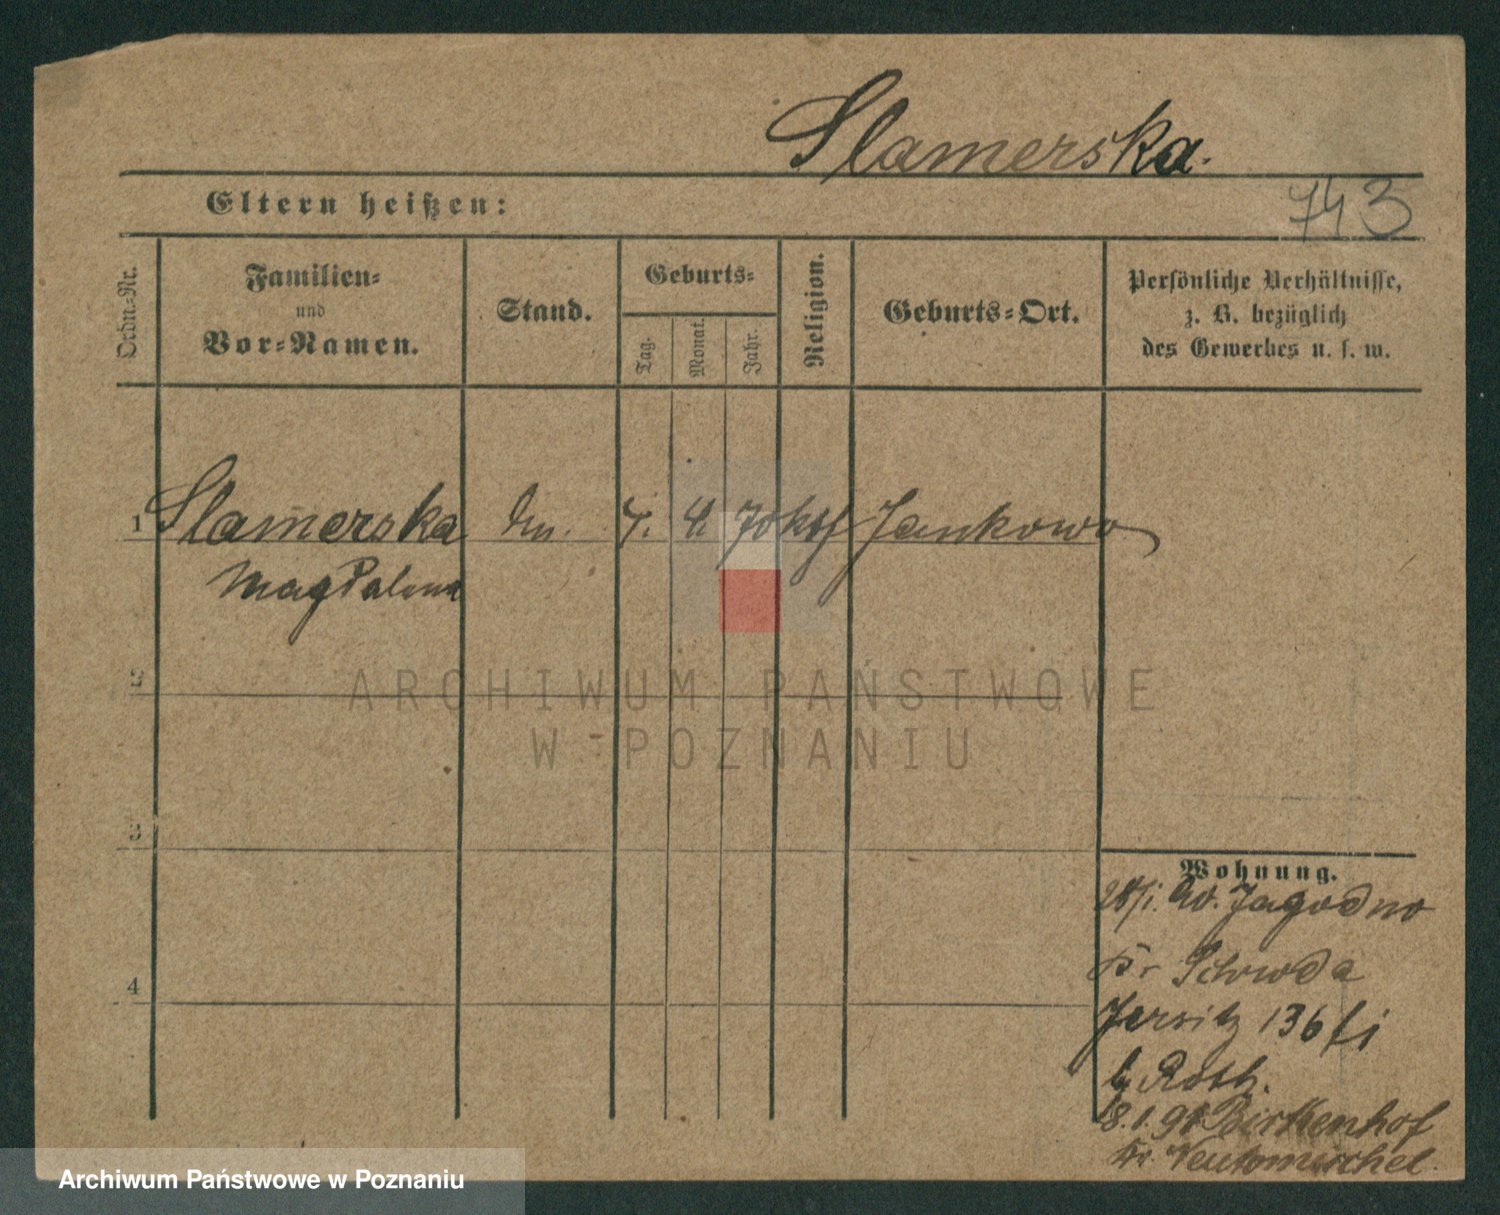 Slamerska.
743
Eltern heißen:
Ordn.-Nr.
Familien-
und
Vor-Namen.
Stand.
Geburts-
Tag.
Monat.
Jahr.
Religion.
Geburts-Ort.
Persönliche Verhältnisse,
z. B. bezüglich
des Gewerbes u. s. w.
1 Slamerska 7. 4. 70 kth Jankowo
Magdalena
2
3
4
Wohnung.
Jagodno
Kr Schroda
Jersitz 136
b/ Roth.
18.1.91 Birkenhof
Kr. Neutomischel.
ARCHIWUM PAŃSTWOWE
W POZNANIU
Archiwum Państwowe w Poznaniu